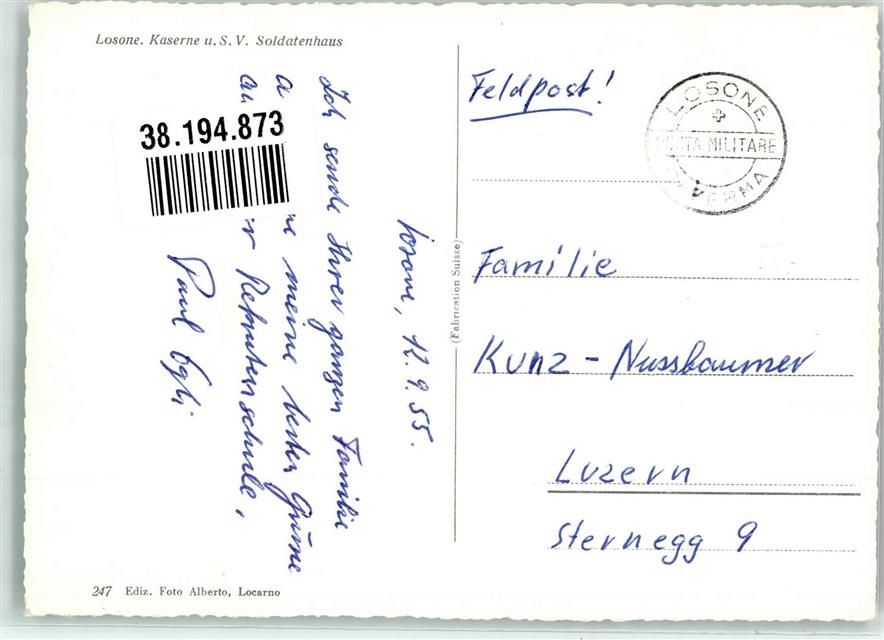 Losone. Kaserne u. S. V. Soldatenhaus
38.194.873
Losone, 12.9.55.
Ich sende Ihrer ganzen Familie
meine besten Grüsse
Rekrutenschule,
Paul Egli
(Fabrication Suisse)
247 Ediz. Foto Alberto, Locarno
Feldpost!
LOSONE
POSTA MILITARE
CASERMA
Familie
Kunz - Nussbaumer
Luzern
Sternegg 9